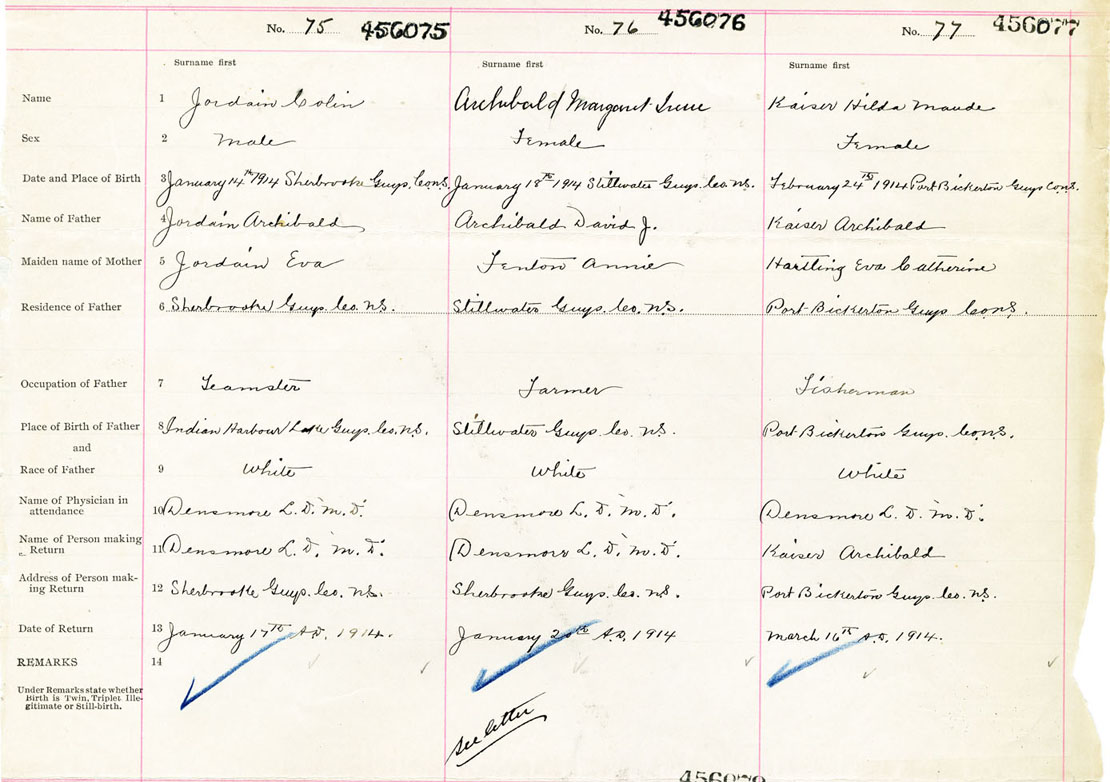 No. 75 456075 No. 76 456076 No. 77 456077
Surname first Surname first Surname first
Name 1 Jordain Colin Archibald Margaret Irene Kaiser Hilda Maude
Sex 2 Male Female Female
Date and Place of Birth 3 January 14th 1914 Sherbrooke Guys. Co N.S. January 18th 1914 Stillwater Guys. Co. N.S. February 24th 1914 Port Bickerton Guys Co N.S.
Name of Father 4 Jordain Archibald Archibald David J. Kaiser Archibald
Maiden name of Mother 5 Jordain Eva Fenton Annie Hartling Eva Catherine
Residence of Father 6 Sherbrooke Guys. Co. N.S. Stillwater Guys. Co. N.S. Port Bickerton Guys Co N.S.
Occupation of Father 7 Teamster Farmer Fisherman
Place of Birth of Father 8 Indian Harbour Lake Guys. Co. N.S. Stillwater Guys. Co. N.S. Port Bickerton Guys. Co N.S.
and
Race of Father 9 White White White
Name of Physician in
attendance 10 Densmore L. D. M. D. Densmore L. D. M. D. Densmore L. D. M. D.
Name of Person making
Return 11 Densmore L. D. M. D. Densmore L. D. M. D. Kaiser Archibald
Address of Person mak-
ing Return 12 Sherbrooke Guys. Co. N.S. Sherbrooke Guys. Co. N.S. Port Bickerton Guys. Co. N.S.
Date of Return 13 January 17th A.D. 1914. January 20th A.D. 1914 March 16th A.D. 1914.
REMARKS 14
Under Remarks state whether
Birth is Twin, Triplet Ille-
gitimate or Still-birth.
see letter